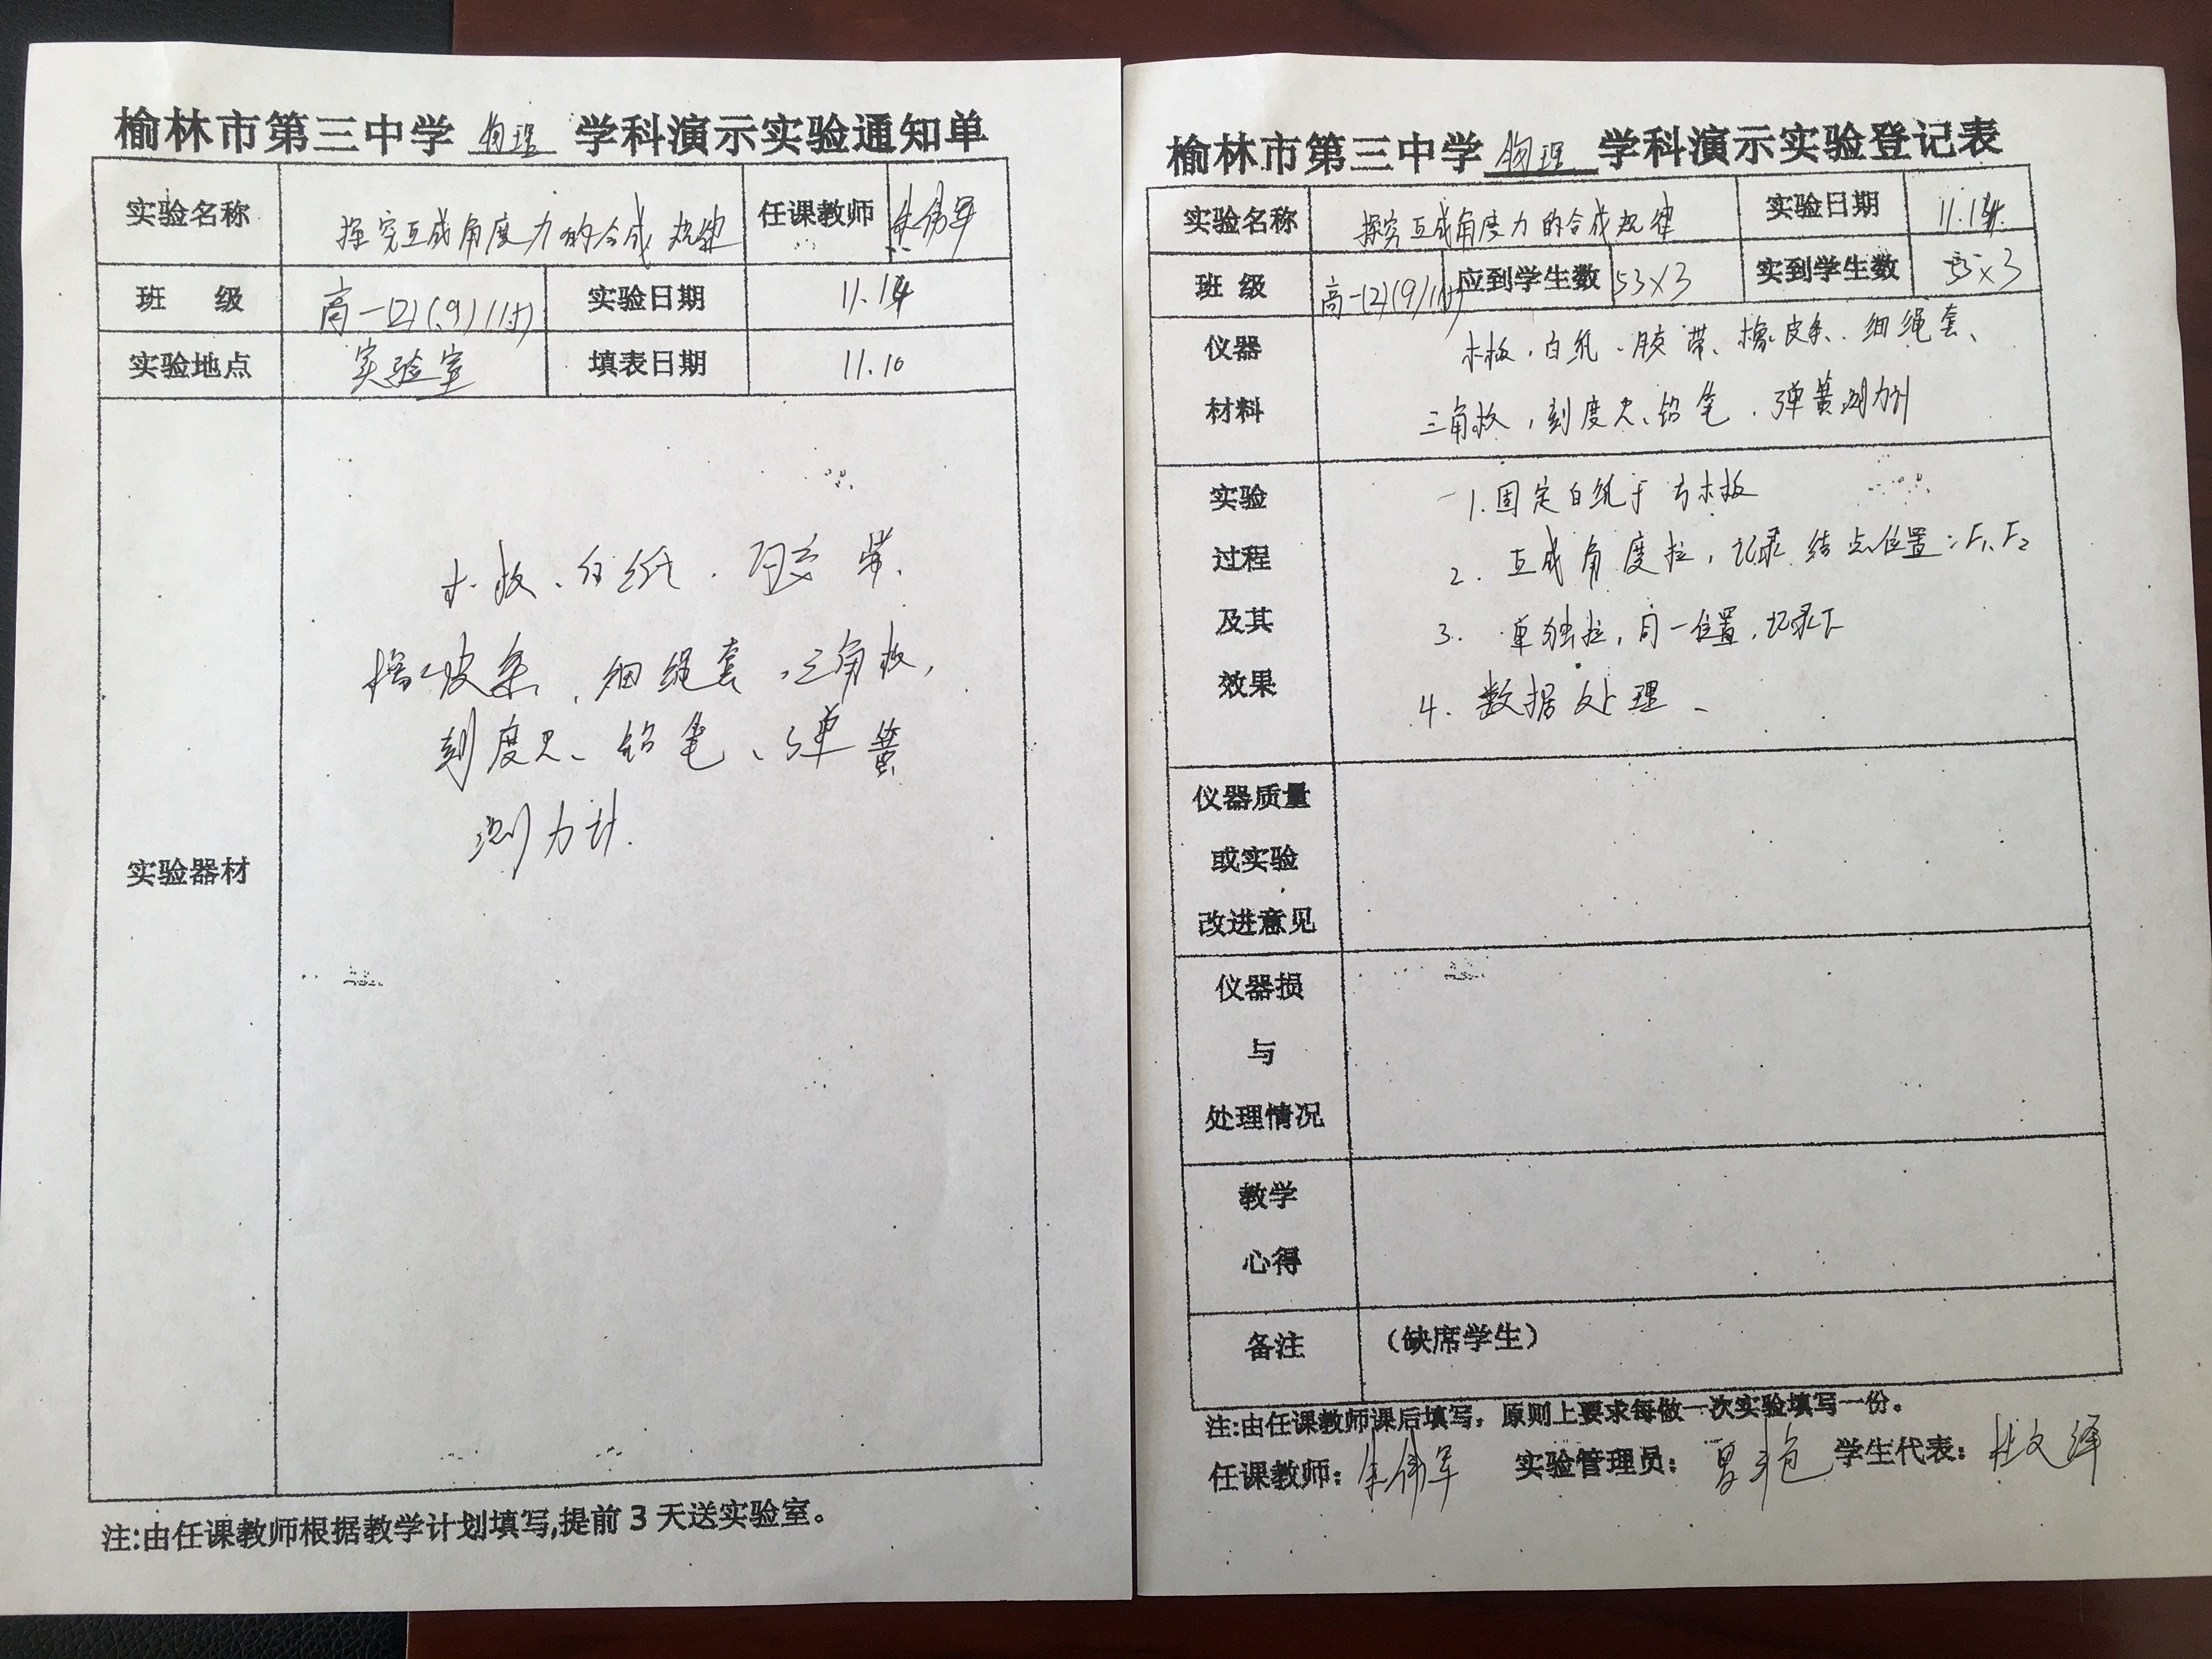 榆林市第三中学 物理 学科演示实验通知单
实验名称 探究互成角度力的合成规律 任课教师 朱伟军
班 级 高一(2)(9)(1 实验日期 11.14
实验地点 实验室 填表日期 11.10
实验器材
木板、白纸、胶带、
橡皮条、细绳套、三角板,
刻度尺、铅笔、弹簧
测力计.
注:由任课教师根据教学计划填写,提前3天送实验室。
榆林市第三中学 物理 学科演示实验登记表
实验名称 探究互成角度力的合成规律 实验日期 11.14.
班 级 高一(2)(9)(1 应到学生数 53×3 实到学生数 53×3
仪器
材料
木板、白纸、胶带、橡皮条、细绳套、
三角板,刻度尺、铅笔、弹簧测力计
实验
过程
及其
效果
1.固定白纸于方木板
2.互成角度拉,记录结点位置;F₁、F₂
3.单独拉,同一位置,记录F
4.数据处理、
仪器质量
或实验
改进意见
仪器损
与
处理情况
教学
心得
备注 (缺席学生)
注:由任课教师课后填写,原则上要求每做一次实验填写一份。
任课教师: 朱伟军 实验管理员: 学生代表: 杜文泽